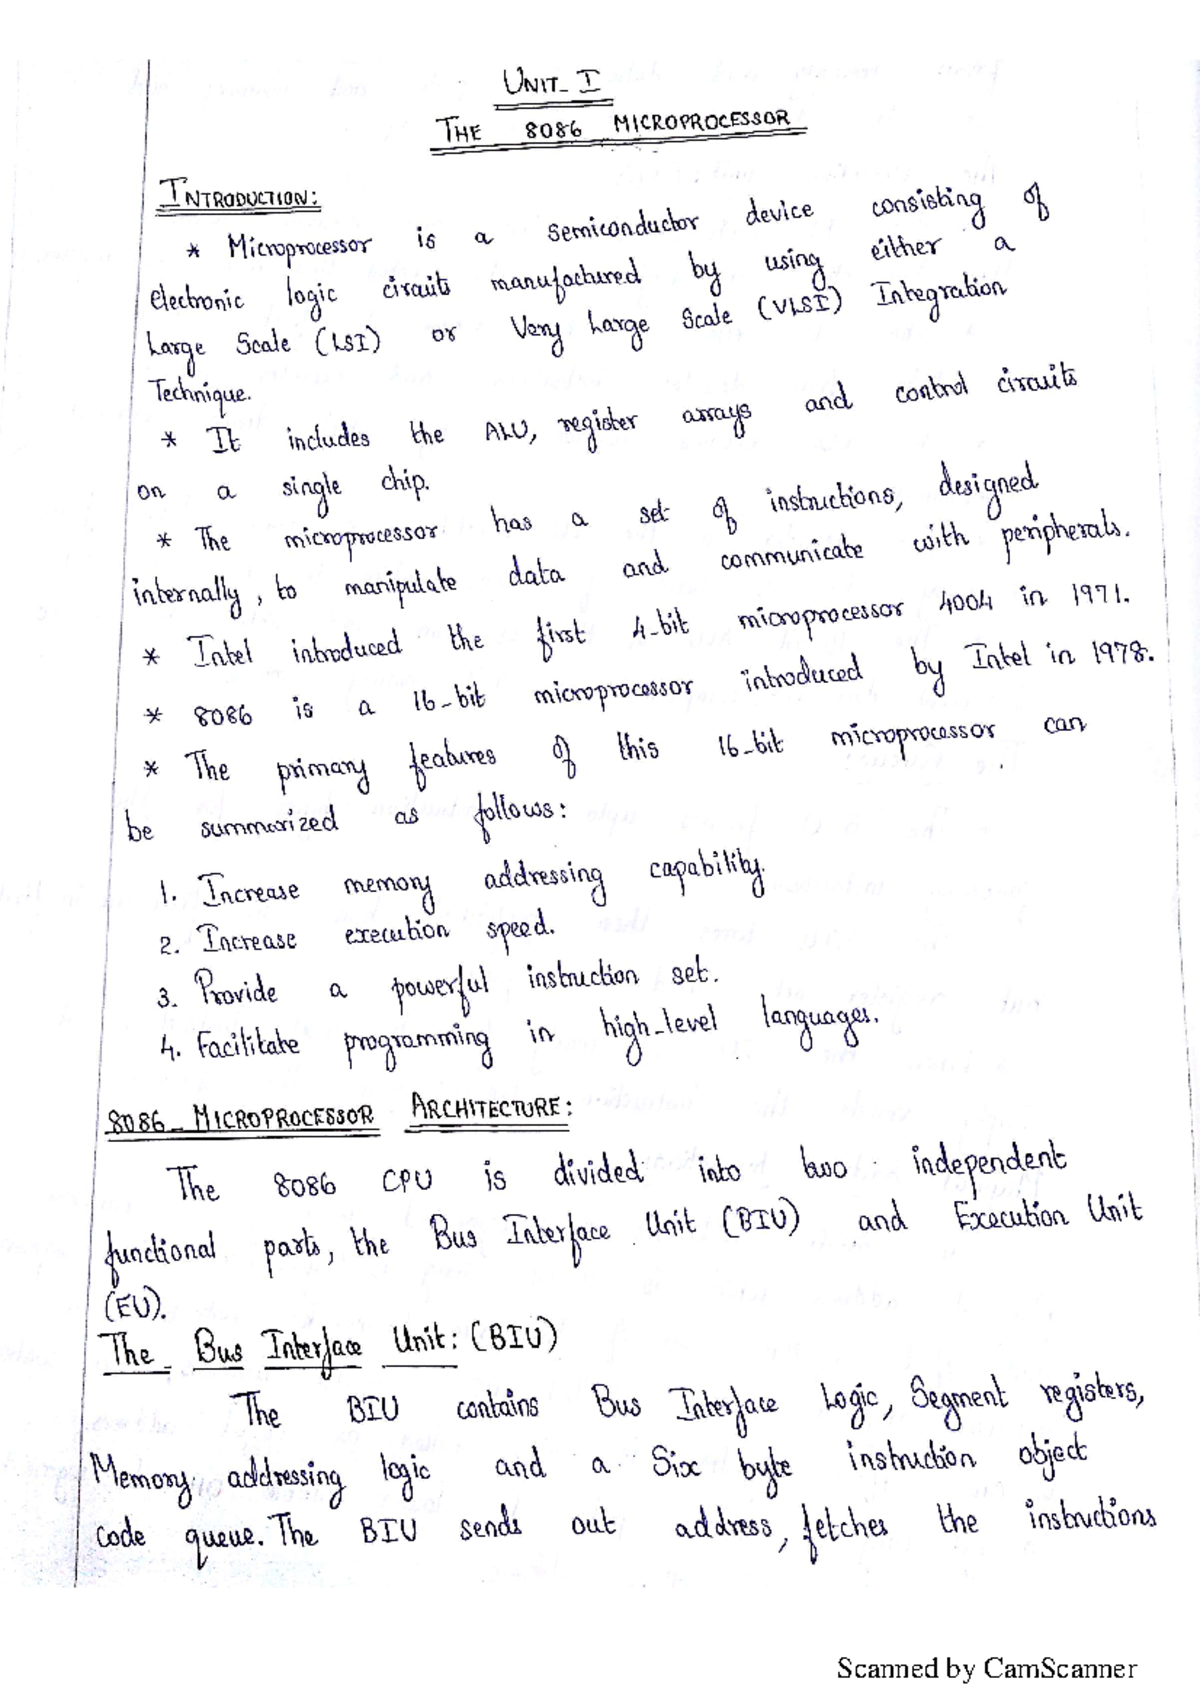 UNIT-I
THE 8086 MICROPROCESSOR
INTRODUCTION:
* Microprocessor is a semiconductor device consisting of
electronic logic circuits manufactured by using either a
Large Scale (LSI) or Very Large Scale (VLSI) Integration
Technique.
* It includes the ALU, register arrays and control circuits
on a single chip.
* The microprocessor has a set of instructions, designed
internally, to manipulate data and communicate with peripherals.
* Intel introduced the first 4-bit microprocessor 4004 in 1971.
* 8086 is a 16-bit microprocessor introduced by Intel in 1978.
* The primary features of this 16-bit microprocessor can
be summarized as follows:
1. Increase memory addressing capability.
2. Increase execution speed.
3. Provide a powerful instruction set.
4. Facilitate programming in high-level languages.
8086-MICROPROCESSOR ARCHITECTURE:
The 8086 CPU is divided into two independent
functional parts, the Bus Interface Unit (BIU) and Execution Unit
(EU).
The Bus Interface Unit: (BIU)
The BIU contains Bus Interface Logic, Segment registers,
Memory addressing logic and a Six byte instruction object
code queue. The BIU sends out address, fetches the instructions
Scanned by CamScanner